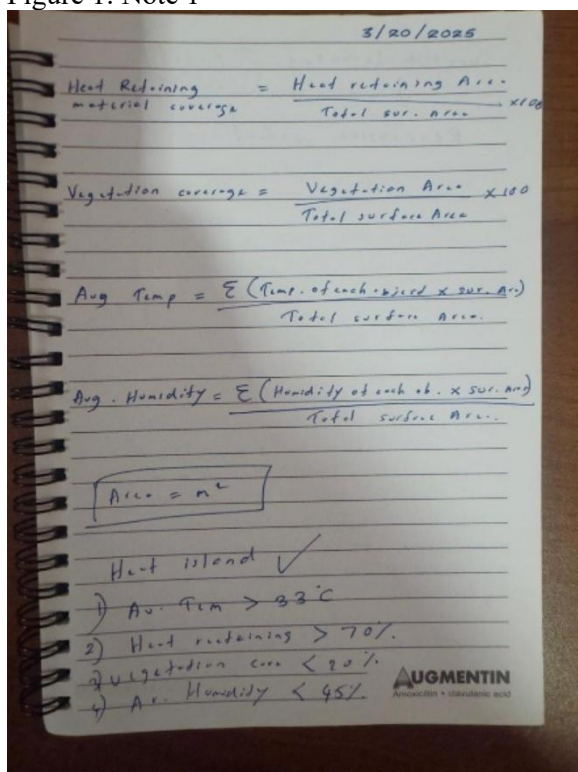 Figure 1: Note 1
3/20/2025
Heat Retaining material coverage = Heat retaining Area / Total sur. Area x100
Vegetation coverage = Vegetation Area / Total surface Area x 100
Avg Temp = Σ (Temp. of each object x sur. Are) / Total surface Area.
Avg. Humidity = Σ (Humidity of each ob. x sur. Are) / Total surface Are..
Area = m²
Heat island ✓
1) Av. Tem > 33°C
2) Heat reataining > 70%.
3) Vegetation cove < 20%.
4) Av. Humidity < 45%.
AUGMENTIN
Amoxicillin + clavulanic acid